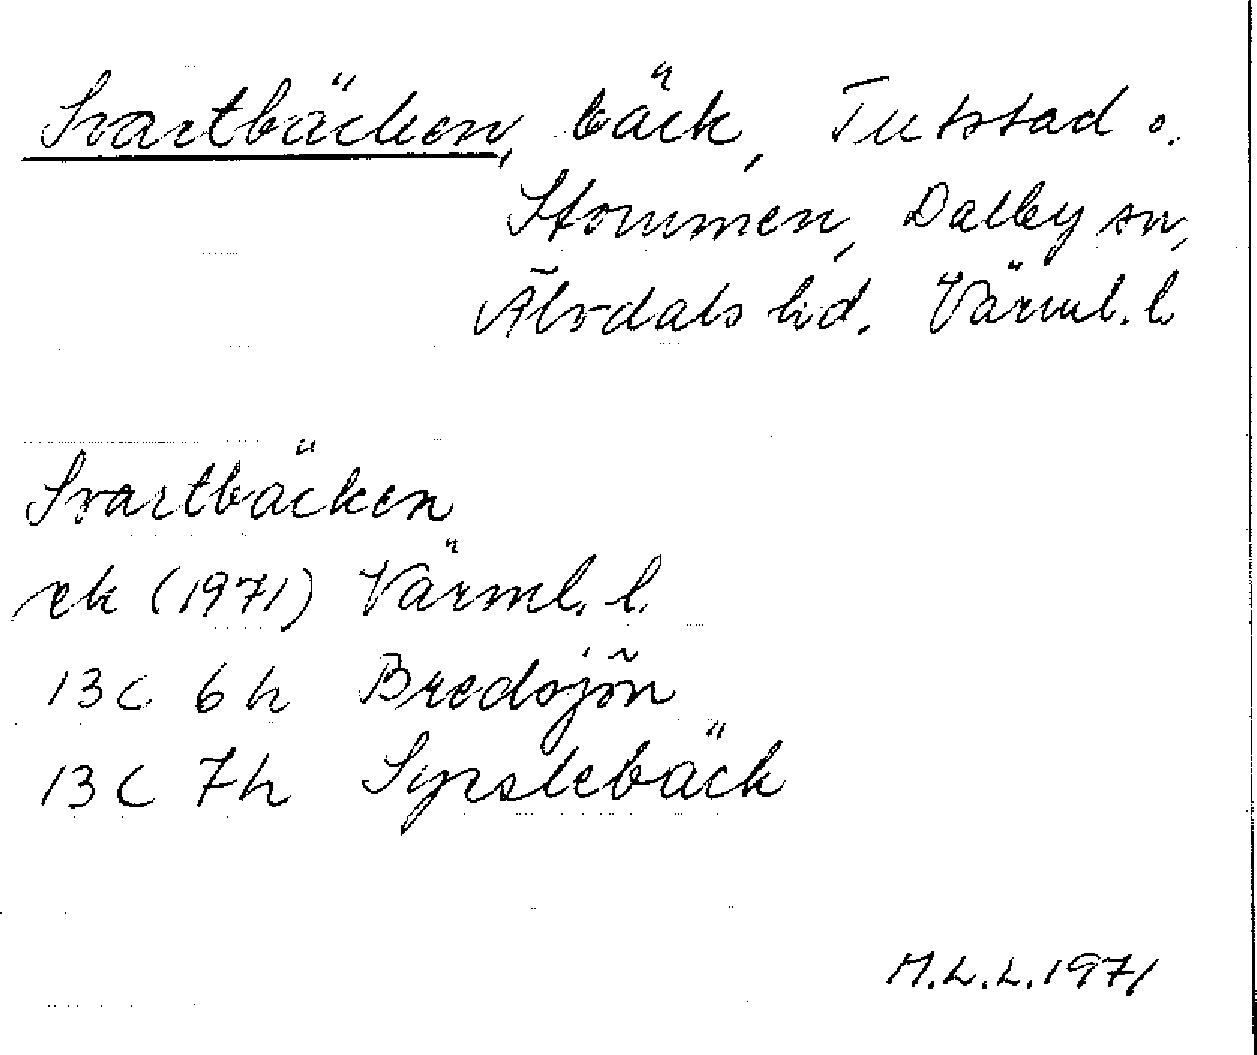 Svartbäcken, bäck, Tutstad o.
Stommen, Dalby sn,
Älvdals hd. Värml. l
Svartbäcken
ek (1971) Värml. l.
13C 6h Bredsjön
13C 7h Syrslebäck
M.L.L. 1971